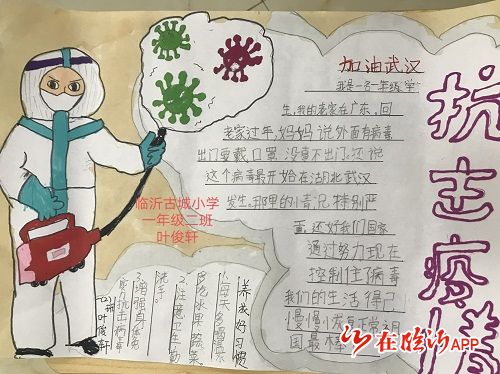 加油武汉
我是一名一年级学
生,我的老家在广东,回
老家过年,妈妈说外面有病毒
出门要戴口罩,没事不出门。还说
这个病毒最开始在湖北武汉
发生,那里的情况特别严
重,还好我们国家
通过努力现在
控制住了病毒
我们的生活得已
慢慢恢复正常,祖
国最棒
抗击疫情
临沂古城小学
一年级二班
叶俊轩
养成好习惯
1.每天多喝水
多吃水果蔬菜
2.注意卫生勤
洗手。
3.增强身体免
一(2)班叶俊轩
在临沂APP